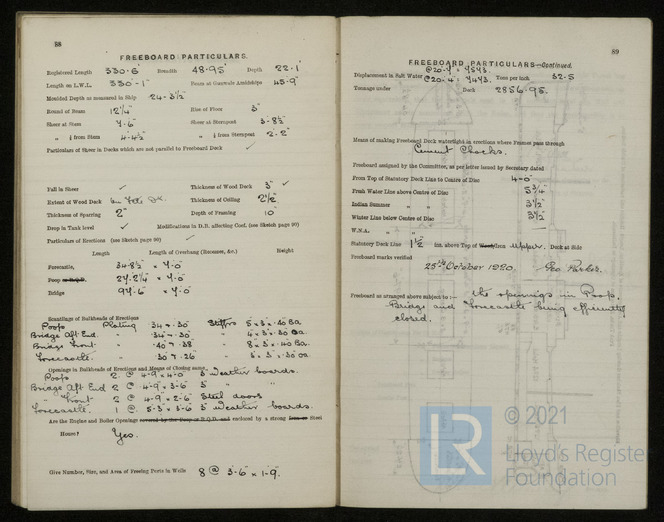 88
FREEBOARD PARTICULARS.
Registered Length 330.6 Breadth 48.95 Depth 22.1
Length on L.W.L. 330'-1" Beam at Gunwale Amidships 48.9
Moulded Depth as measured in Ship 24-3½"
Round of Beam 12¼" Rise of Floor 3"
Sheer at Stem 7-6" Sheer at Sternpost 3-8½"
" ⅛ from Stem 4-4½" " ⅛ from Sternpost 2-2"
Particulars of Sheer in Decks which are not parallel to Freeboard Deck ✓
Fall in Sheer ✓ Thickness of Wood Deck 3" ✓
Extent of Wood Deck Thickness of Ceiling 2½"
Thickness of Sparring 2" Depth of Framing 10"
Drop in Tank level ✓ Modifications in D.B. affecting Coef. (see Sketch page 90) ✓
Particulars of Erections (see Sketch page 90) ✓
Length Length of Overhang (Recesses, &c.) Height
Forecastle, 34-8½" × 7-0"
Poop or R.Q.D. 27-2¼" × 7-0"
Bridge 97-6" × 7-0"
Scantlings of Bulkheads of Erections
Poops Plating 34 & .30" Stiffrs 5 × 3 × .30 Ba.
Bridge Aft End. " .34 & .30 " 4 × 3 × .30 Ba
Bridge Front. " .40 & .38 " 8 × 3 × .40 Ba.
Forecastle. " 30 & .26 "
Openings in Bulkheads of Erections and Means of Closing same
Poops 2 @ 4-9" × 4-0" 3" weather boards.
Bridge Aft End 2 @ 4-9" × 3-6" 3" " "
" Front 2 @ 4-9" × 2-6" Steel doors
Forecastle. 1 @ 5-3 × 3-6 3" weather boards.
Are the Engine and Boiler Openings covered by the Poop or R.Q.D. and enclosed by a strong Iron or Steel
House? Yes.
Give Number, Size, and Area of Freeing Ports in Wells 8 @ 3'-6" × 1'-9".
89
FREEBOARD PARTICULARS—Continued.
@20-7": 7573.
Displacement in Salt Water @20-4": 7473. Tons per inch 32.5
Tonnage under Deck 2856.95.
Means of making Freeboard Deck watertight in erections where Frames pass through
Cement Chocks.
Freeboard assigned by the Committee, as per letter issued by Secretary dated
From Top of Statutory Deck Line to Centre of Disc 4-0"
Fresh Water Line above Centre of Disc 5¾"
Indian Summer " " 3½"
Winter Line below Centre of Disc 3½"
W.N.A. " "
Statutory Deck Line 1½ ins. above Top of Wood/Iron upper. Deck at Side
Freeboard marks verified
25th October 1920. Geo Parker.
Freeboard as arranged above subject to:— the openings in Poop,
Bridge and Forecastle being efficiently
closed.
LR
© 2021
Lloyd's Register
Foundation